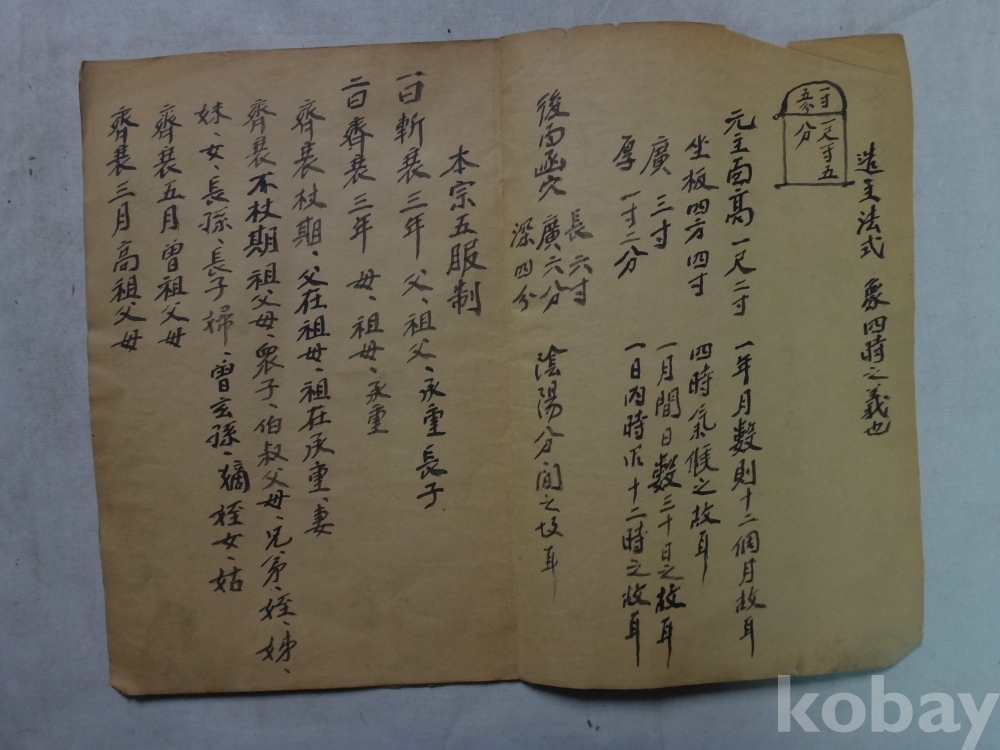 造主法式 象四時之義也
一寸
五分
一尺一寸五
分
元主面高一尺二寸 一年月數則十二個月故耳
坐板四方四寸 四時氣候之故耳
廣三寸 一月間日數三十日之故耳
厚一寸二分 一日內時 十二時之故耳
後面函穴 長六寸
廣六分 陰陽分間之故耳
深四分
本宗五服制
一曰斬衰三年 父、祖父、承重長子
二曰齊衰三年 母、祖母、承重
齊衰杖期、父在祖母、祖在承重、妻
齊衰不杖期 祖父母、衆子、伯叔父母、兄弟、姪、姊、
妹、女、長孫、長子婦、曾玄孫、嫡姪女、姑
齊衰五月曾祖父母
齊衰三月高祖父母
kobay